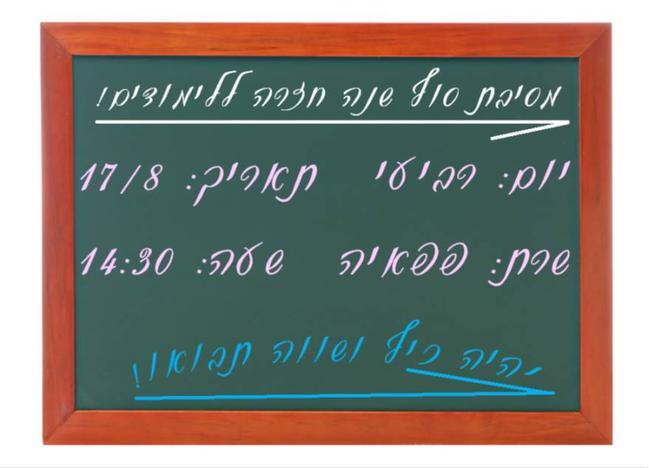 מסיבת סוף שנה חזרה ללימודים!
יום: רביעי תאריך: 17/8
שרת: פפאיה שעה: 14:30
יהיה כיף ושווה תבואו!!